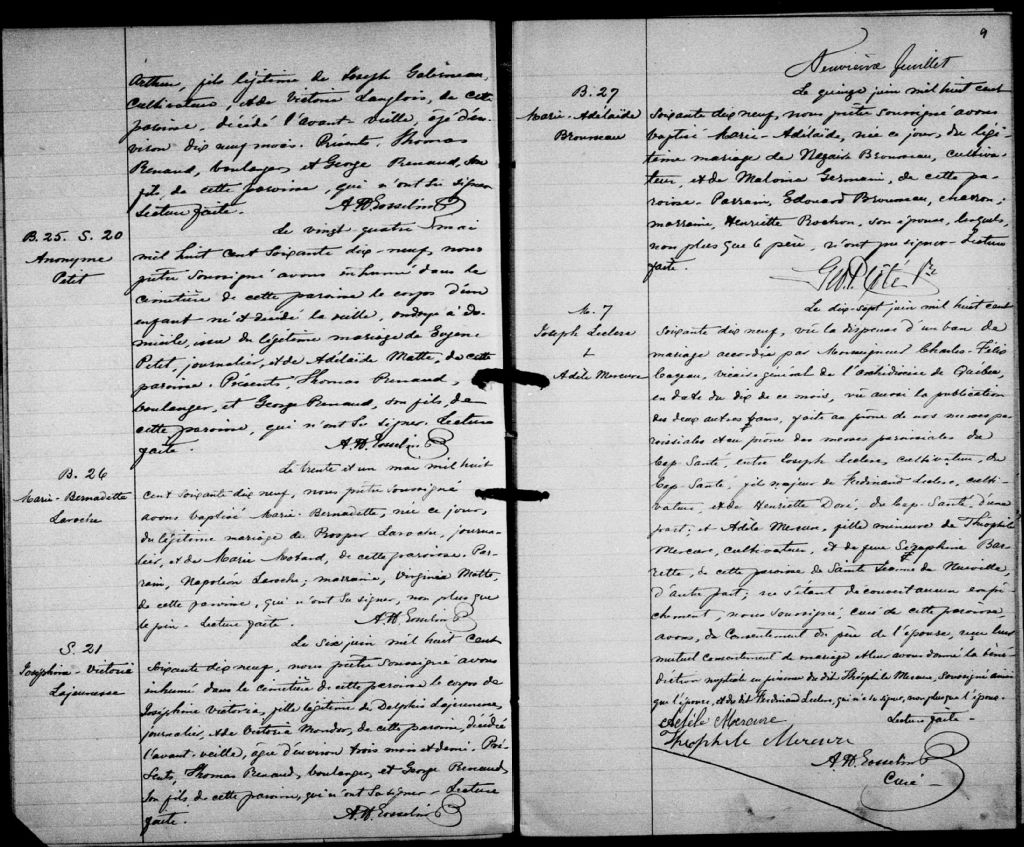 Arthur, fils légitime de Joseph Galerneau,
cultivateur, et de Victoria Langlois, de cette
paroisse, décédé l'avant-veille, âgé d'en-
viron dix neuf mois. Présents Thomas
Renaud, boulanger, et George Renaud, son
fils, de cette paroisse, qui n'ont su signer.
Lecture faite.
A. H. Gosselin Ptre
B. 25. S. 20
Anonyme
Petit
Le vingt quatre mai
mil huit cent soixante dix-neuf, nous
prêtre soussigné avons inhumé dans le
cimetière de cette paroisse le corps d'un
enfant né et décédé la veille, ondoyé à do-
micile, issu du légitime mariage de Eugène
Petit, journalier, et de Adélaïde Matte, de cette
paroisse. Présents Thomas Renaud,
boulanger, et George Renaud, son fils, de
cette paroisse, qui n'ont su signer. Lecture
faite.
A. H. Gosselin Ptre
B. 26
Marie-Bernadette
Laroche
Le trente et un mai mil huit
cent soixante dix neuf, nous prêtre soussigné
avons baptisé Marie-Bernadette, née ce jour,
du légitime mariage de Prosper Laroche, journa-
lier, et de Marie Motard, de cette paroisse. Par-
rain, Napoléon Laroche; marraine, Virginie Matte,
de cette paroisse, qui n'ont su signer, non plus que
le père. Lecture faite.
A. H. Gosselin Ptre
S. 21
Joséphine-Victoria
Lajeunesse
Le six juin mil huit cent
soixante dix neuf, nous prêtre soussigné avons
inhumé dans le cimetière de cette paroisse le corps de
Joséphine Victoria, fille légitime de Delphis Lajeunesse,
journalier, et de Victoria Mondor, de cette paroisse, décédée
l'avant-veille, âgée d'environ trois mois et demi. Pré-
sents, Thomas Renaud, boulanger, et George Renaud,
son fils de cette paroisse, qui n'ont su signer - Lecture
faite.
A. H. Gosselin Ptre
9
Neuvième feuillet
B. 27
Marie-Adélaïde
Brousseau
Le quinze juin mil huit cent
soixante dix neuf, nous prêtre soussigné avons
baptisé Marie-Adélaïde, née ce jour, du légi-
time mariage de Nazaire Brousseau, cultiva-
teur, et de Malvina Germain, de cette pa-
roisse. Parrain, Edouard Brousseau, charron;
marraine, Henriette Rochon, son épouse, lesquels,
non plus que le père, n'ont pu signer - Lecture
faite.
Geo. P. Côté Ptre
M. 7
Joseph Leclerc
&
Adèle Mercure
Le dix-sept juin mil huit cent
soixante dix neuf, vu la dispense d'un ban de
mariage accordée par Monseigneur Charles-Félix
Cazeau, vicaire général de l'archidiocèse de Québec,
en date du dix de ce mois, vu aussi la publication
des deux autres bans, faite au prône de nos messes pa-
roissiales et au prône des messes paroissiales du
Cap-Santé, entre Joseph Leclerc, cultivateur, du
Cap-Santé, fils majeur de Ferdinand Leclerc, culti-
vateur, et de Henriette Doré, du Cap-Santé, d'une
part; et Adèle Mercure, fille mineure de Théophile
Mercure, cultivateur, et de feue Séraphine Bar-
rette, de cette paroisse de Sainte Jeanne de Neuville,
d'autre part; ne s'étant découvert aucun empê-
chement, nous soussigné, Curé de cette paroisse
avons, du consentement du père de l'épouse, reçu leur
mutuel consentement de mariage et leur avons donné la béné-
diction nuptiale en présence du dit Théophile Mercure, soussigné ainsi
que l'épouse, et du dit Ferdinand Leclerc, qui n'a su signer, non plus que l'époux.
Lecture faite -
Adèle Mercure
Théophile Mercure
A. H. Gosselin Ptre
Curé -